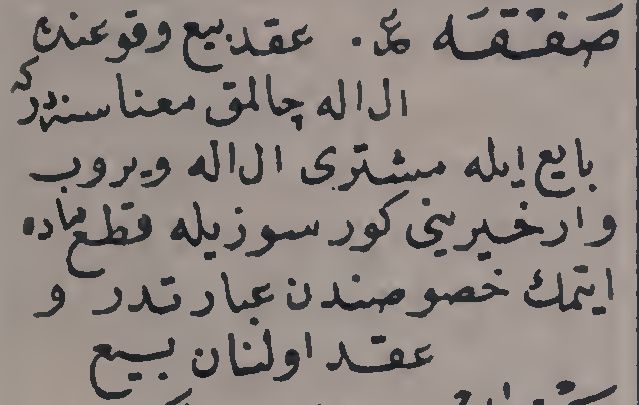 صَفْقَه ع. عقد بيع وقوعنده
ال اله چالمق معناسنەدركه
بايع ايله مشترى ال اله ويروب
وار خيريني كور سوزيله قطع ماده
ايتمك خصوصندن عبارتدر و
عقد اولنان بيع